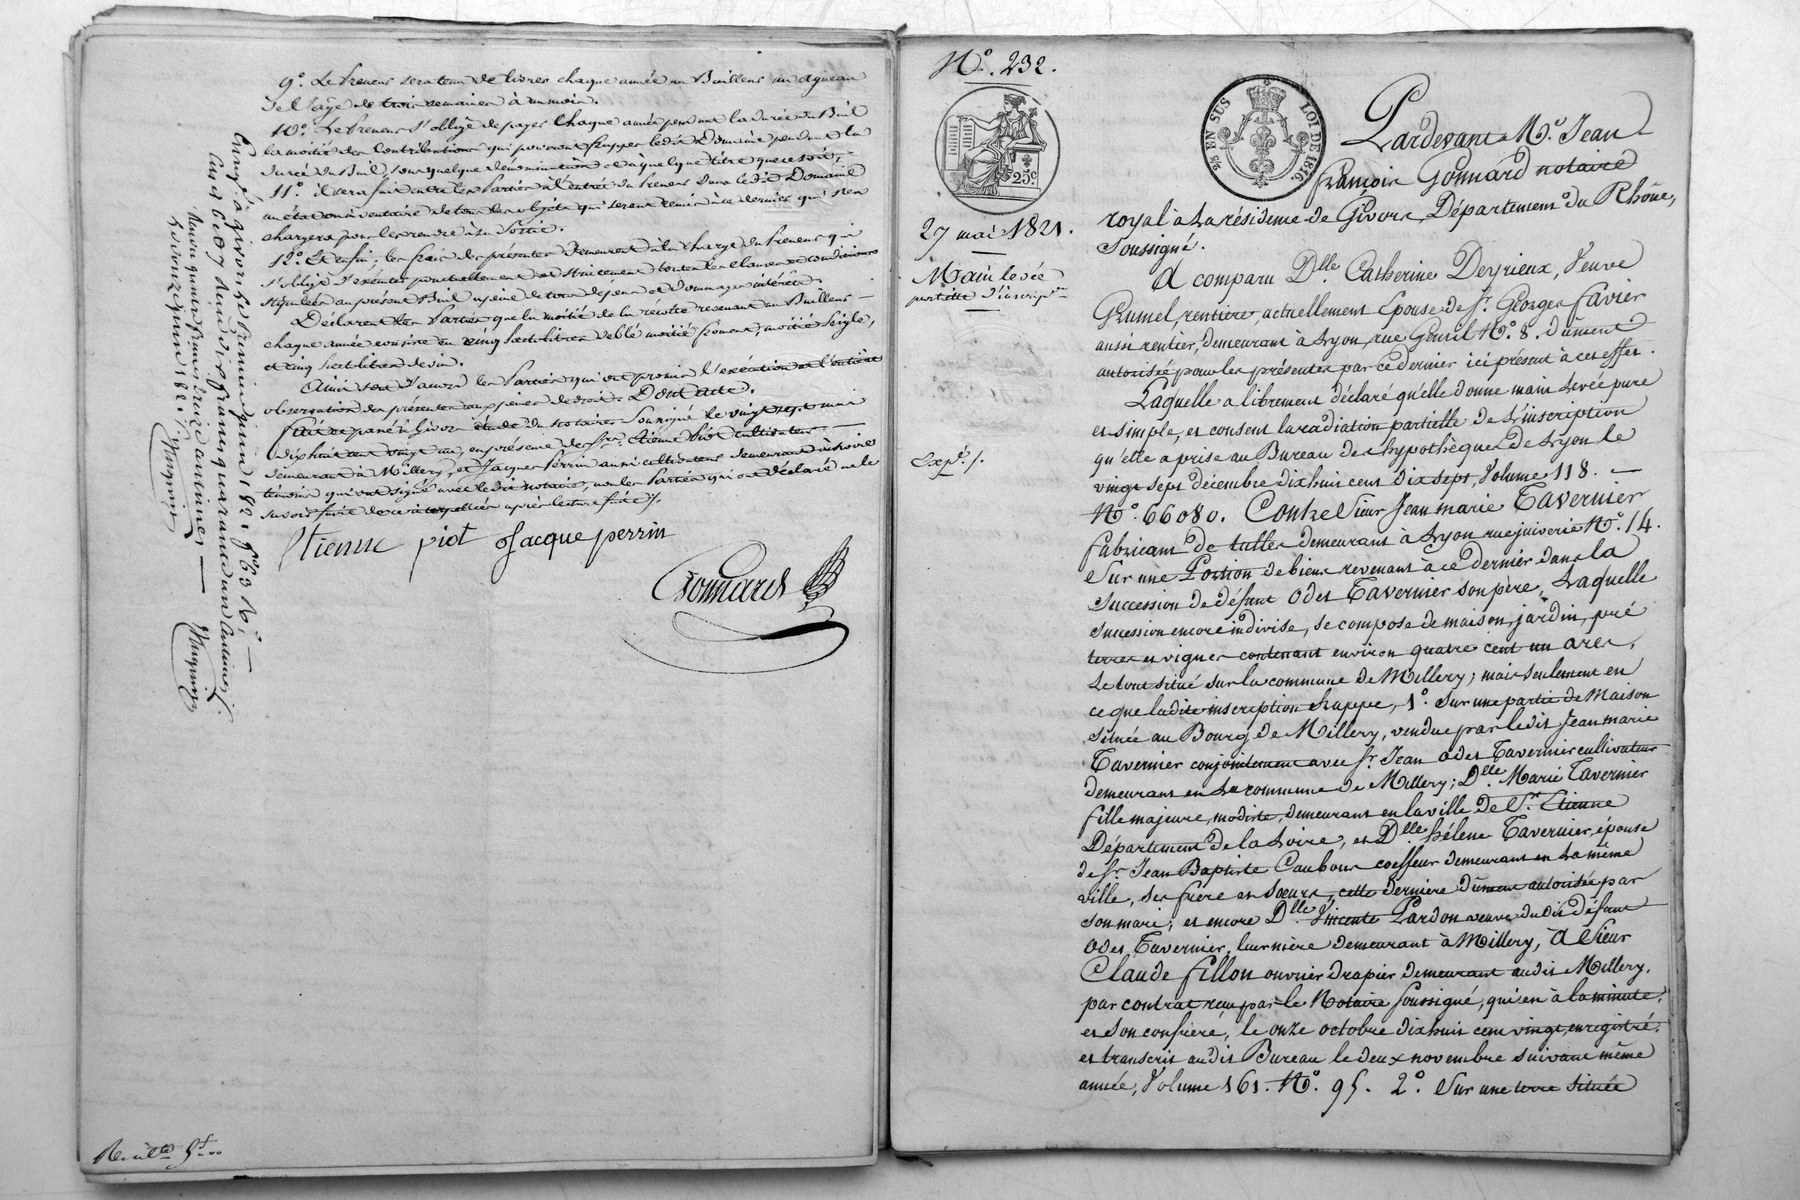 9º. Le Preneur sera tenu de livrer chaque année au Bailleur un agneau
de l'âge de trois semaines à un mois.
10º. Le Preneur s'oblige de payer chaque année pendant la durée du Bail
la moitié des Contributions qui pourront frapper ledit Domaine pendant la
durée du Bail, sous quelque dénomination et à quelque titre que ce soit,
11º. il sera fait entre les Parties à l'entrée du Preneur dans ledit Domaine
un état ou inventaire de tous les objets qui seront remis à ce dernier qui s'en
chargera pour les rendre à sa Sortie.
12º. Et enfin, les frais des présentes demeurent à la charge du Preneur qui
s'oblige d'exécuter ponctuellement et strictement toutes les clauses et conditions
stipulées au présent Bail à peine de tous dépens et dommages intérêts.
Déclarent les Parties que la moitié de la récolte revenant au Bailleur
chaque année consiste en cinq hectolitres de blé moitié froment, moitié seigle,
et cinq hectolitres de vin.
Ainsi sont d'accord les Parties qui ont promis l'exécution et l'entière
observation des présentes aux peines de droit. Dont acte.
fait et passé à Givors étude du notaire Soussigné le vingt sept mai
dix huit cent vingt un, en présence des Srs. Etienne Piot cultivateur
demeurant à Millery, et Jacques Perrin aussi cultivateur demeurant à
témoins qui ont signé avec ledit notaire, non les Parties qui ont déclaré ne le
savoir faire de ce interpellées après lecture faite /.
Etienne piot Jacque perrin
Gonnard
Enregé. à Givors le premier juin 1821 fº 63 Rº.
Cases 6 et 7 deux francs quarante un centimes /.
Nº. 232.
25c.
27 mai 1821.
Main levée
partielle d'inscripon.
Expé. /.
25 EN SUS
LOI DE 1816.
Pardevant Me. Jean
françois Gonnard notaire
royal à la résidence de Givors, Département du Rhône,
Soussigné.
A comparu Dlle. Catherine Deyrieux, Veuve
Grumel, rentière, actuellement épouse de Sr. Georges Favier
aussi rentier, demeurant à Lyon, rue Gentil Nº. 8. dument
autorisée pour les présentes par ce dernier ici présent à cet effet.
Laquelle a librement déclaré qu'elle donne main levée pure
et simple, et consent la radiation partielle de l'inscription
qu'elle a prise au Bureau des hypothèques de Lyon le
vingt sept décembre dix huit cent dix sept, Volume 118.
Nº. 66080. Contre Sieur Jean marie Tavernier
fabricant de tulles demeurant à Lyon rue juiverie Nº. 14.
Sur une Portion de biens revenant à ce dernier dans la
succession de défunt Odet Tavernier son père, Laquelle
succession encore indivise, se compose de maison, jardin, pré
terres et vignes contenant environ quatre cent un ares,
Le tout situé sur la commune de Millery; mais seulement en
ce que ladite inscription frappe, 1º. Sur une partie de Maison
située au Bourg de Millery, vendue par ledit Jean marie
Tavernier conjointement avec Sr. Jean Odet Tavernier cultivateur
demeurant en la commune de Millery; Dlle. Marie Tavernier
fille majeure, modiste, demeurant en la ville de St. Etienne
Département de la Loire, et Dlle. hélène Tavernier, épouse
de Sr. Jean Baptiste Caubour coeffeur demeurant en la même
ville, ses frère et sœurs, cette dernière dûment autorisée par
son mari; et encore Dlle. Vincente Pardon veuve dudit défunt
Odet Tavernier, leur mère demeurant à Millery, à Sieur
Claude fillon ouvrier drapier demeurant audit Millery,
par contrat reçu par le Notaire Soussigné, qui en a la minute,
et son confrère, le onze octobre dix huit cent vingt, enregistré,
et transcrit audit Bureau le deux novembre suivant même
année, Volume 161. Nº. 95. 2º. Sur une terre située